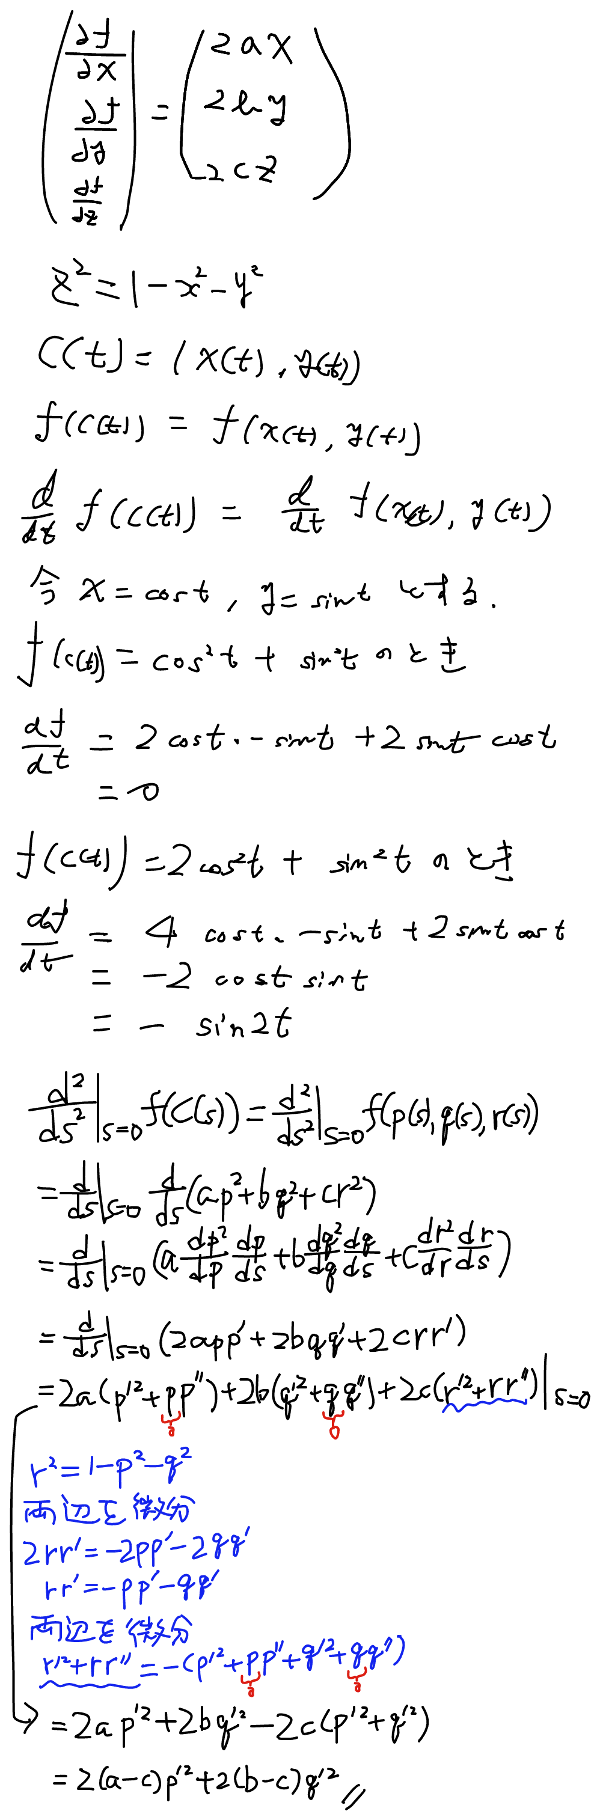 (∂f/∂x, ∂f/∂y, ∂f/∂z) = (2ax, 2by, 2cz)
z² = 1 - x² - y²
C(t) = (x(t), y(t))
f(C(t)) = f(x(t), y(t))
d/dt f(C(t)) = d/dt f(x(t), y(t))
今 x = cos t, y = sin t とする.
f(C(t)) = cos² t + sin² t のとき
df/dt = 2 cos t · - sin t + 2 sin t cos t
= 0
f(C(t)) = 2 cos² t + sin² t のとき
df/dt = 4 cos t · - sin t + 2 sin t cos t
= -2 cos t sin t
= - sin 2t
d²/ds²|s=0 f(C(s)) = d²/ds²|s=0 f(p(s), q(s), r(s))
= d/ds|s=0 d/ds (ap² + bq² + cr²)
= d/ds|s=0 (a dp²/dp dp/ds + b dq²/dq dq/ds + c dr²/dr dr/ds)
= d/ds|s=0 (2app' + 2bqq' + 2crr')
= 2a(p'² + pp'') + 2b(q'² + qq'') + 2c(r'² + rr'')|s=0
0 0
r² = 1 - p² - q²
両辺を微分
2rr' = -2pp' - 2qq'
rr' = -pp' - qq'
両辺を微分
r'² + rr'' = -(p'² + pp'' + q'² + qq'')
0 0
= 2ap'² + 2bq'² - 2c(p'² + q'²)
= 2(a-c)p'² + 2(b-c)q'² //